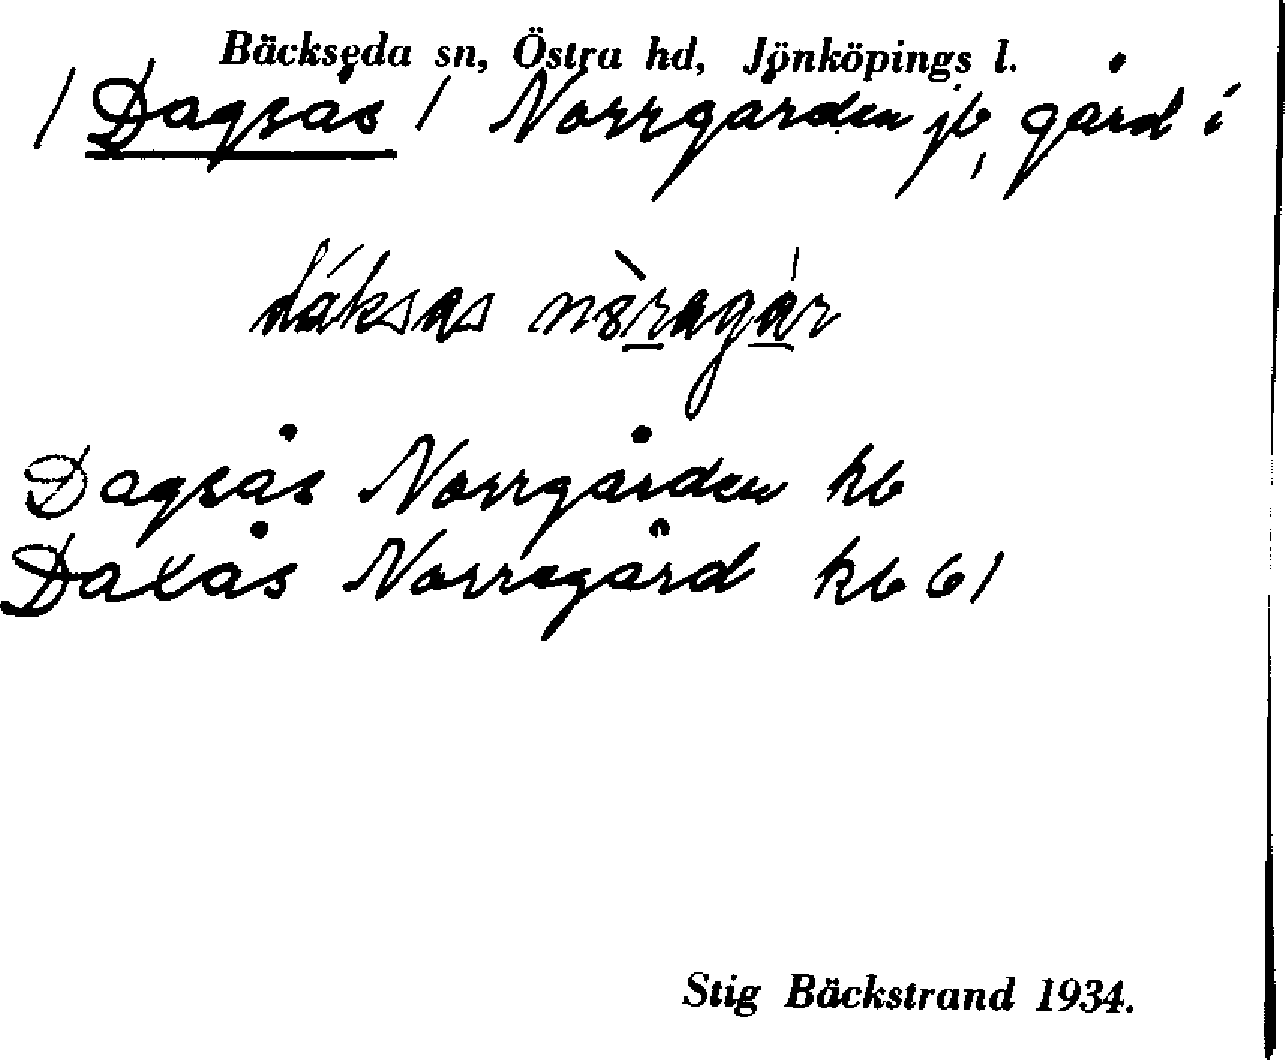 Bäckseda sn, Östra hd, Jönköpings l.
/ Dagsås / Norrgården jb, gård i
dáksas nòragár
Dagsås Norrgården kb
Daxås Norregård kb 61
Stig Bäckstrand 1934.